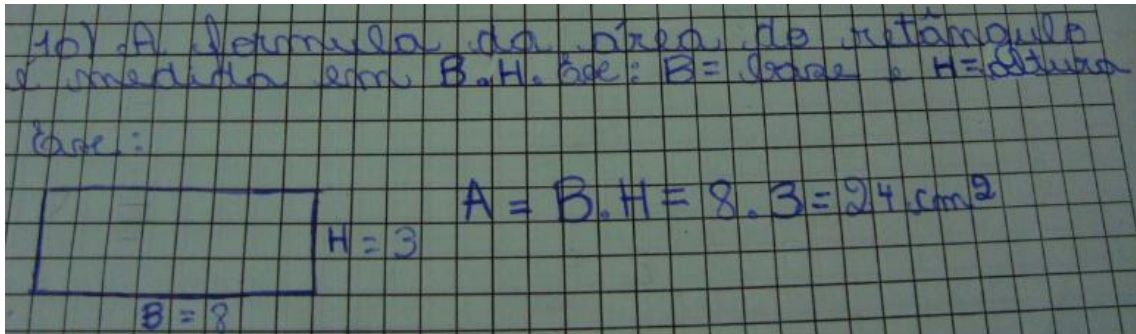 10) A formula da área do retângulo
é medida em B.H. Exe: B= base e H=altura
Exe.:
A = B.H = 8.3 = 24 cm²
H = 3
B = 8